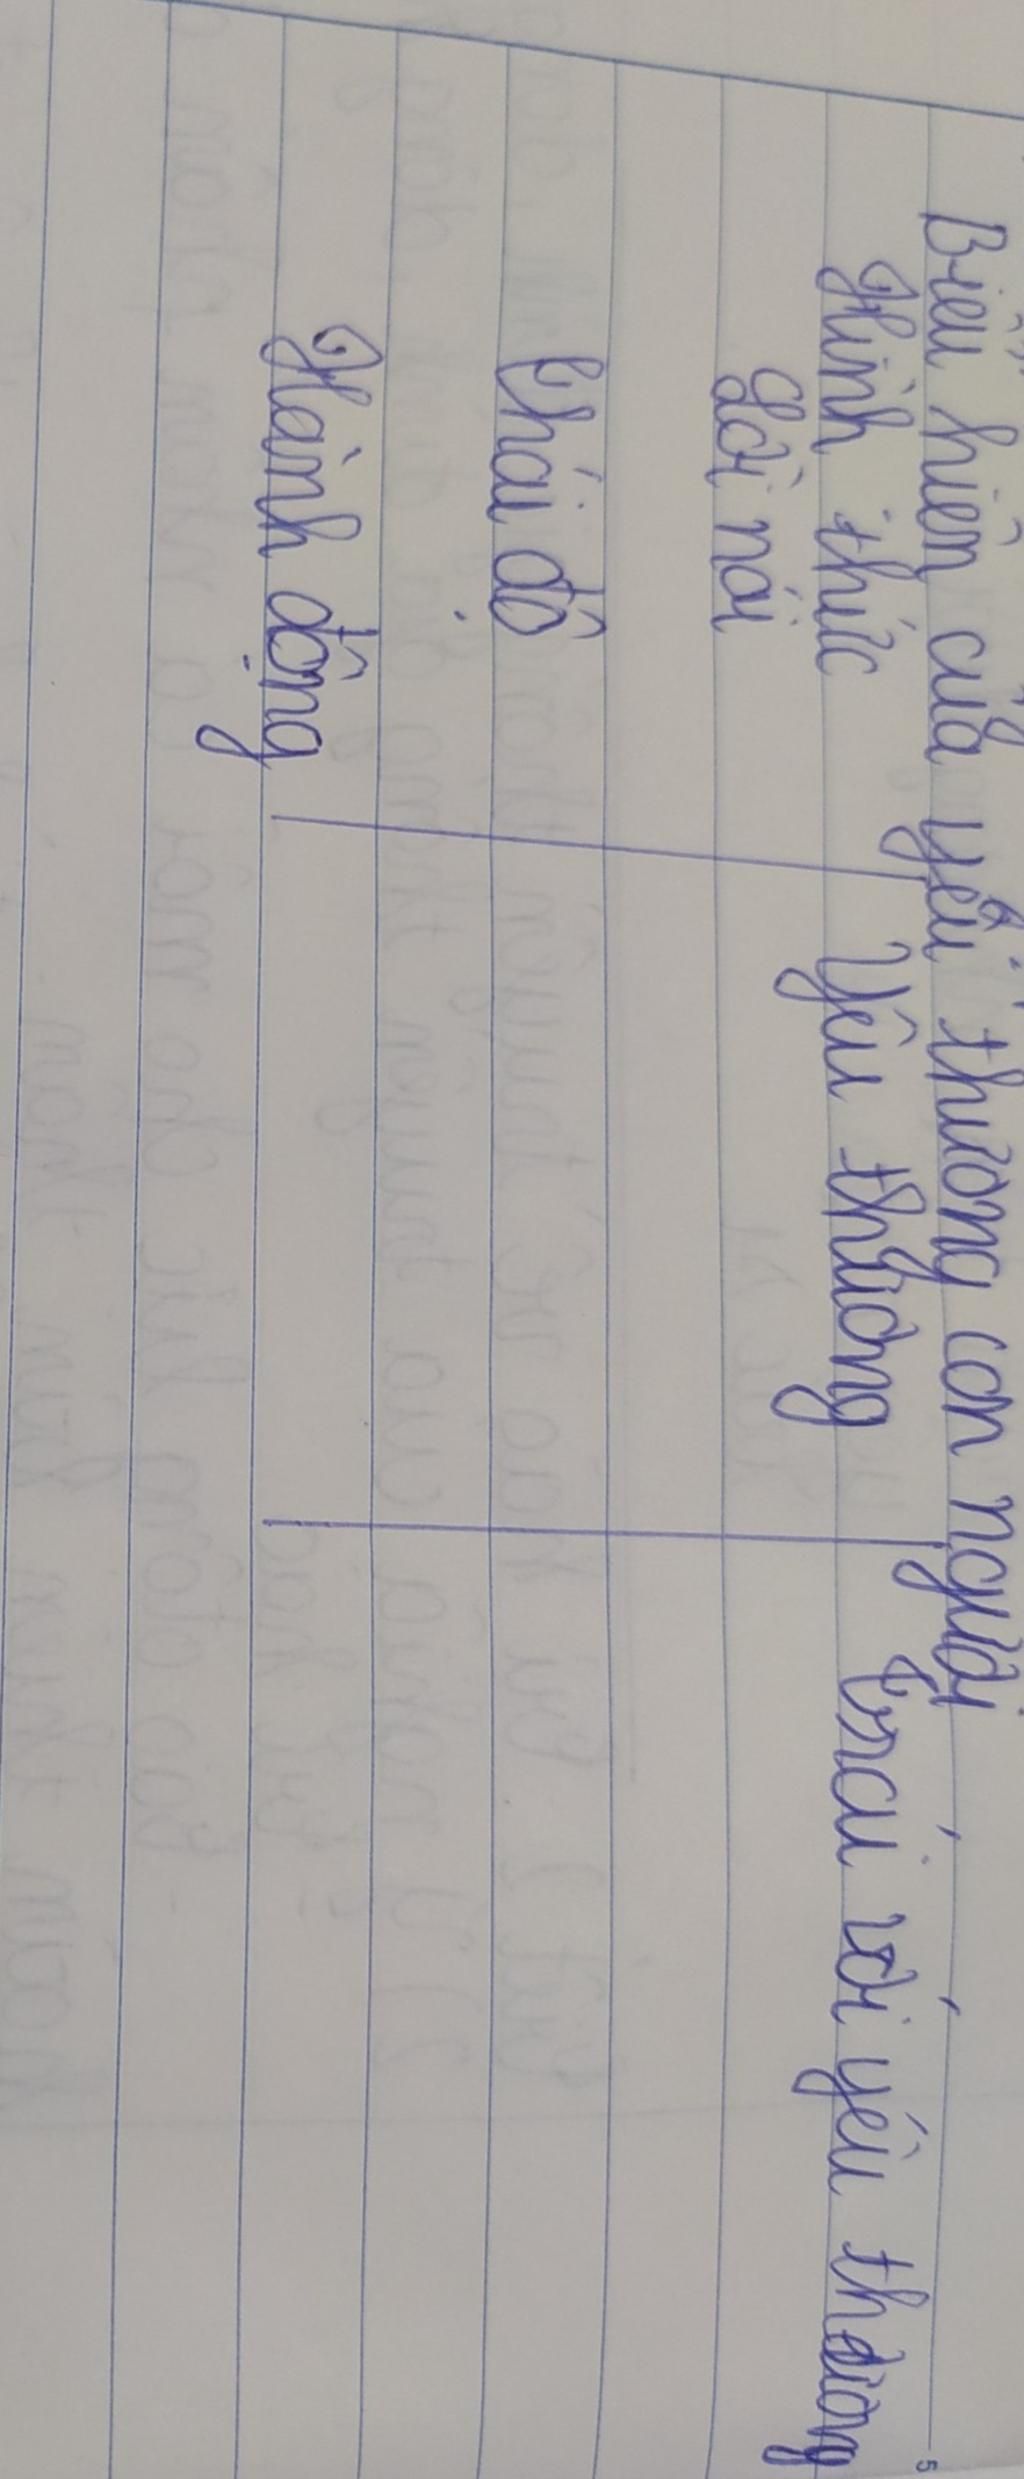 Biểu hiện của yêu thương con người
Hình thức Yêu thương Trái với yêu thương
Lời nói
Thái độ
Hành động
5